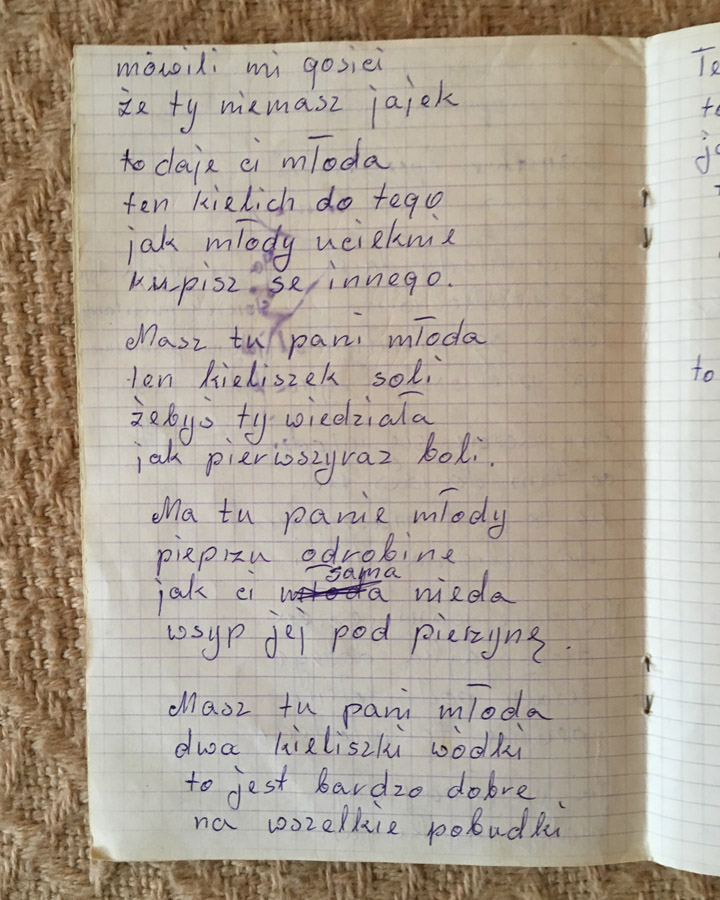 mówili mi gosici
że ty niemasz jajek
to daje ci młoda
ten kielich do tego
jak młody ucieknie
kupisz se innego.
Masz tu pani młoda
ten kieliszek soli
żebyś ty wiedziała
jak pierwszyraz boli.
Ma tu panie młody
pieprzu odrobine
sama
jak ci młoda nieda
wsyp jej pod pierzynę.
Masz tu pani młoda
dwa kieliszki wódki
to jest bardzo dobre
na wszelkie pobudki
to